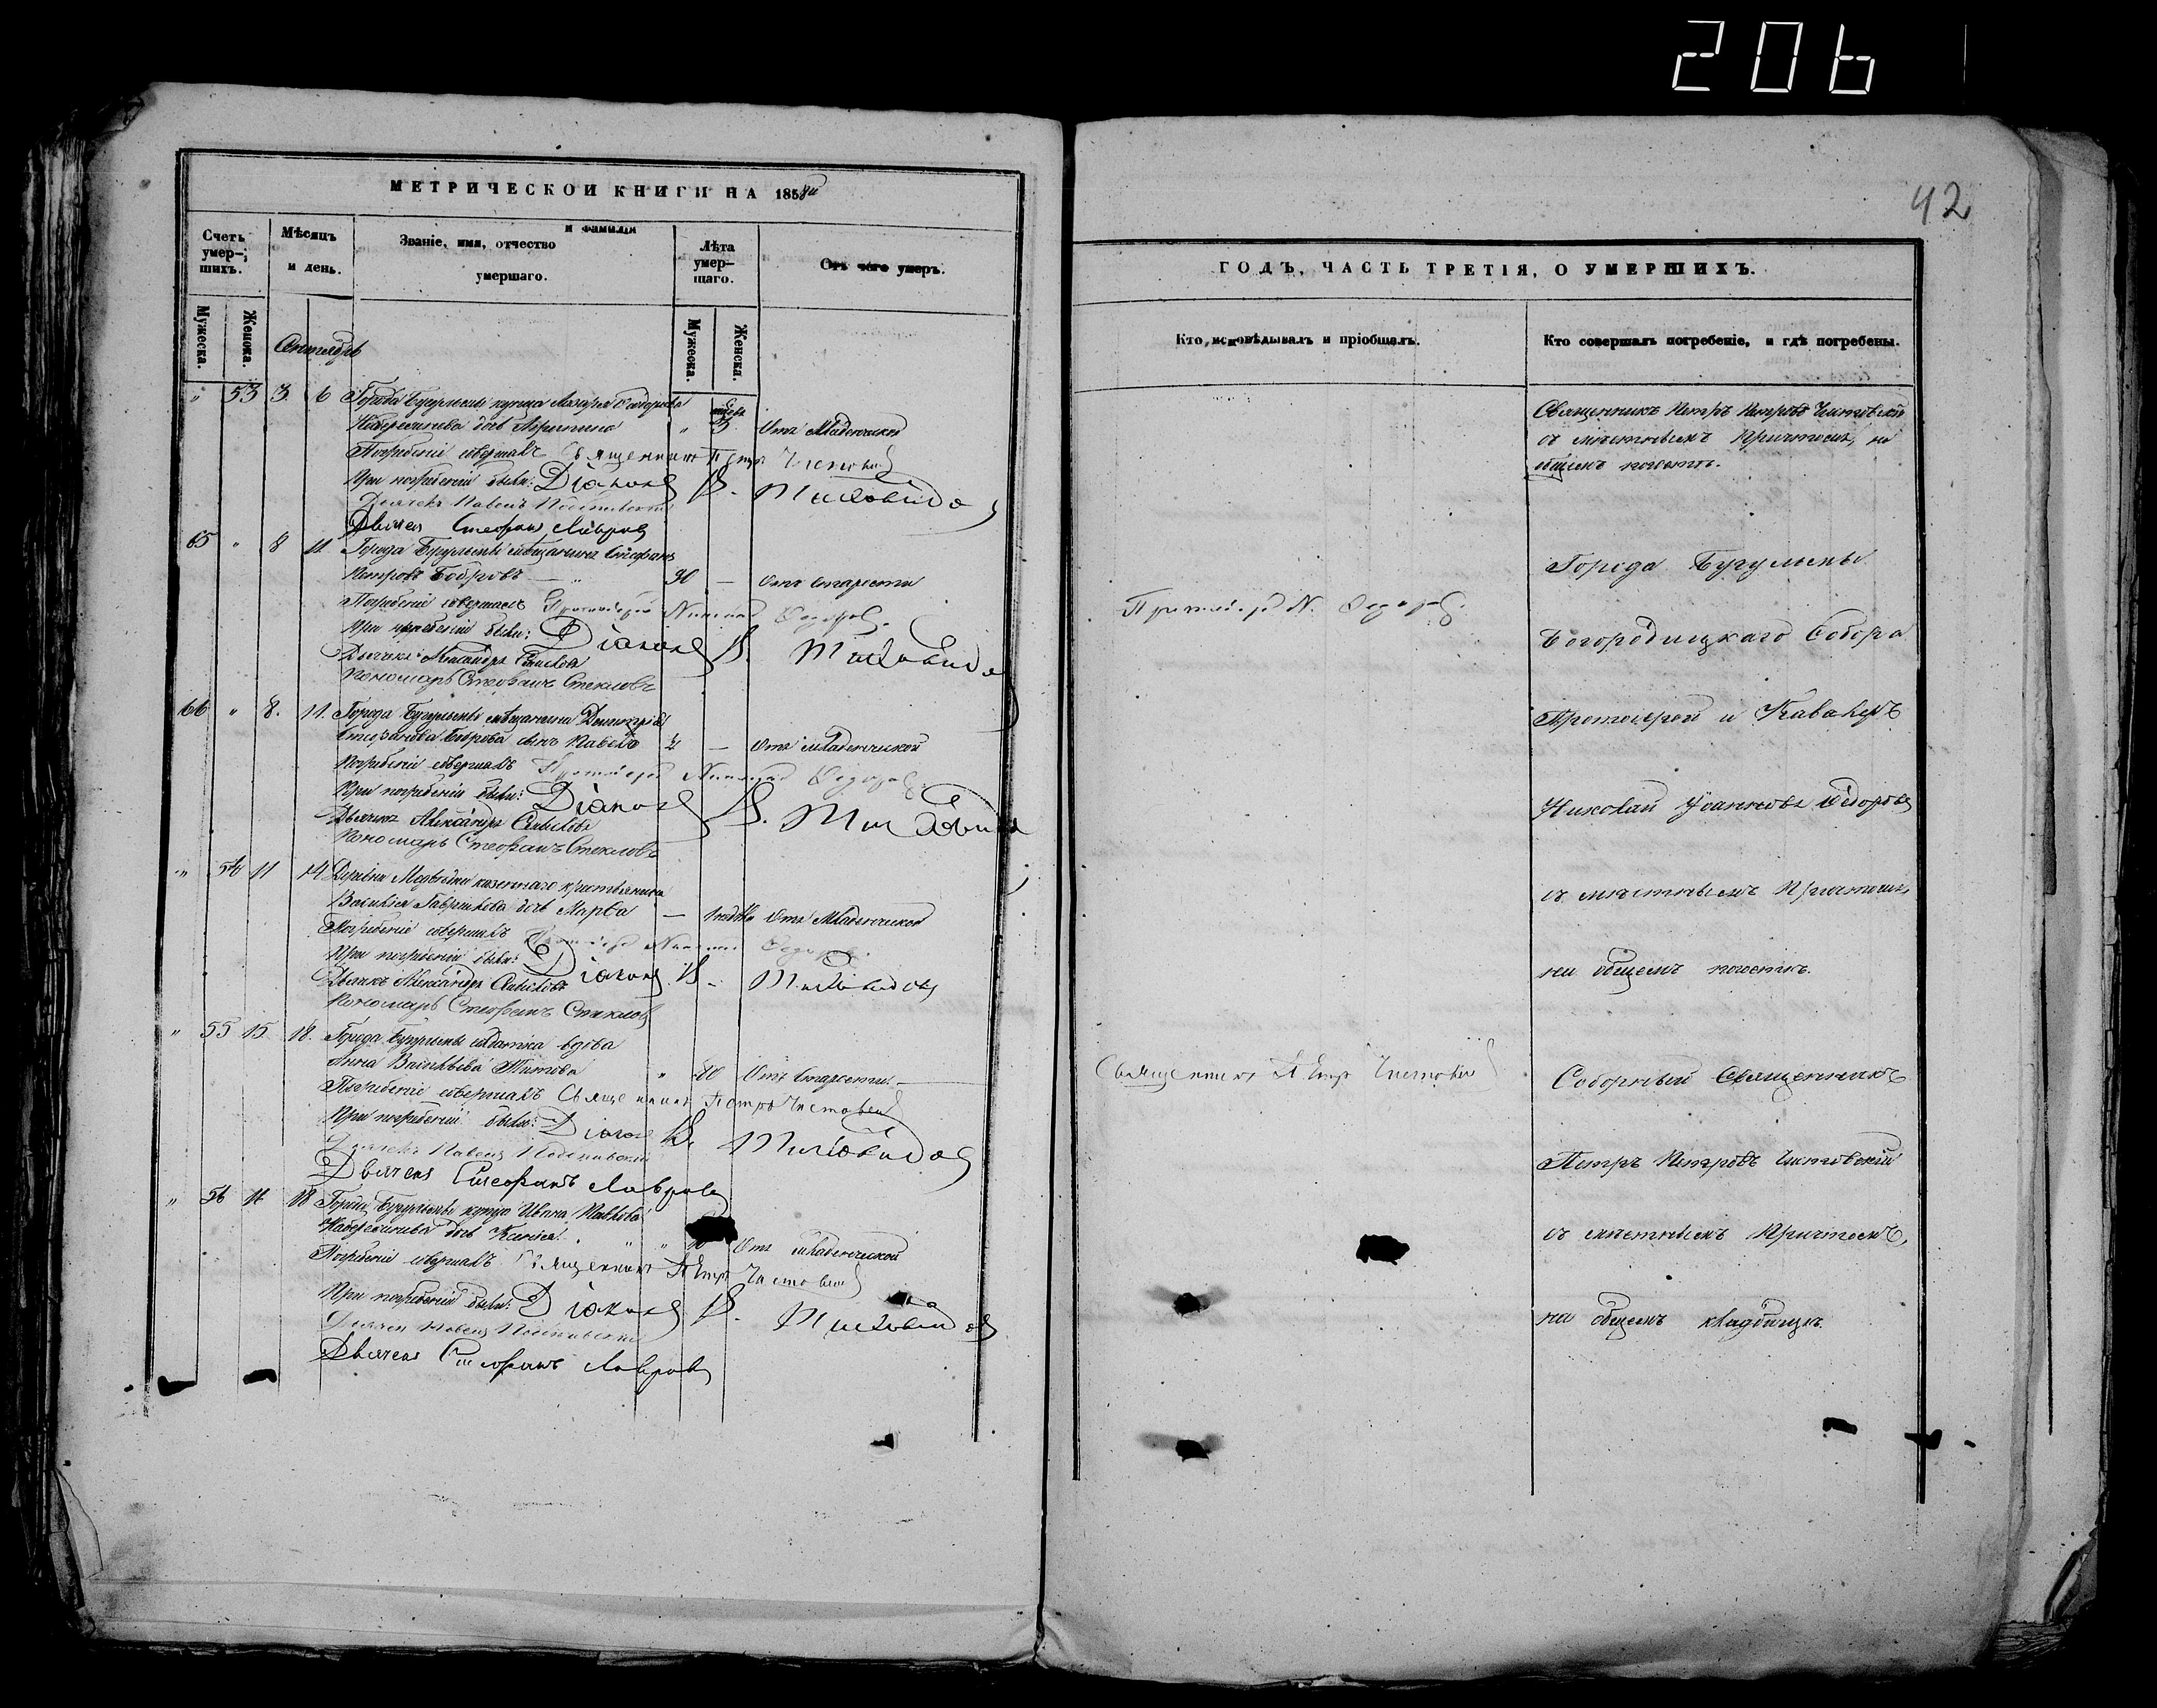 206
42
МЕТРИЧЕСКОЙ КНИГИ НА 1858й
Счетъ умерших.
Мѣсяцъ и день.
Званіе, имя, отчество и фамилія умершаго.
Лѣта умершаго.
Отъ чего умеръ.
Мужеска.
Женска.
Мужеска.
Женска.
Сентябрь
" 53 3 6 Города Бугульмы купца
дочь
" 3 Отъ младенческой
Погребеніе совершалъ Священникъ Петръ Чистовскій
При погребеніи были: Діаконъ В. Миловидовъ
Дьячекъ Павелъ
Дьячекъ Стефанъ Лавровъ
65 " 8 11 Города Бугульмы мѣщанинъ Стефанъ
Петровъ Бобровъ — " 90 — Отъ старости
Погребеніе совершалъ Протоіерей Николай Ѳедоровъ.
При погребеніи были: Діаконъ В. Миловидовъ
Дьячекъ Александръ
Пономарь Стефанъ Стекловъ
66 " 8. 11. Города Бугульмы мѣщанина Димитрія
Стефанова Боброва сынъ Павелъ — Отъ младенческой
Погребеніе совершалъ Протоіерей Николай Ѳедоровъ.
При погребеніи были: Діаконъ В. Миловидовъ
Дьячекъ Александръ
Пономарь Стефанъ Стекловъ
" 54 11 14 Деревни казеннаго крестьянина
Василія Гаврилова дочь Марѳа — Отъ младенческой
Погребеніе совершалъ Протоіерей Николай Ѳедоровъ.
При погребеніи были: Діаконъ В. Миловидовъ
Дьячекъ Александръ
Пономарь Стефанъ Стекловъ
" 55 15 18. Города Бугульмы солдатка вдова
Анна Васильева Титова " 80 Отъ старости. —
Погребеніе совершалъ Священникъ Петръ Чистовскій
При погребеніи были: Діаконъ В. Миловидовъ
Дьячекъ Павелъ
Дьячекъ Стефанъ Лавровъ
" 56 16 18 Города Бугульмы купца Ивана Павлова
дочь Ксенія " " Отъ младенческой
Погребеніе совершалъ Священникъ Петръ Чистовскій
При погребеніи были: Діаконъ В. Миловидовъ
Дьячекъ Павелъ
Дьячекъ Стефанъ Лавровъ
ГОДЪ, ЧАСТЬ ТРЕТІЯ, О УМЕРШИХЪ.
Кто исповѣдывалъ и пріобщалъ.
Кто совершалъ погребеніе, и гдѣ погребены.
Священникъ Петръ Петровъ Чистовскій
съ мѣстнымъ Причтомъ, на
общемъ погостѣ.
Города Бугульмы
Протоіерей Н. Ѳедоровъ.
Богородицкаго Собора
Протоіерей и Кавалеръ
Николай Іоанновъ Ѳедоровъ
съ мѣстнымъ Причтомъ,
на общемъ погостѣ.
Священникъ Петръ Чистовскій
Соборный Священникъ
Петръ Петровъ Чистовскій
съ мѣстнымъ Причтомъ,
на общемъ кладбищѣ.